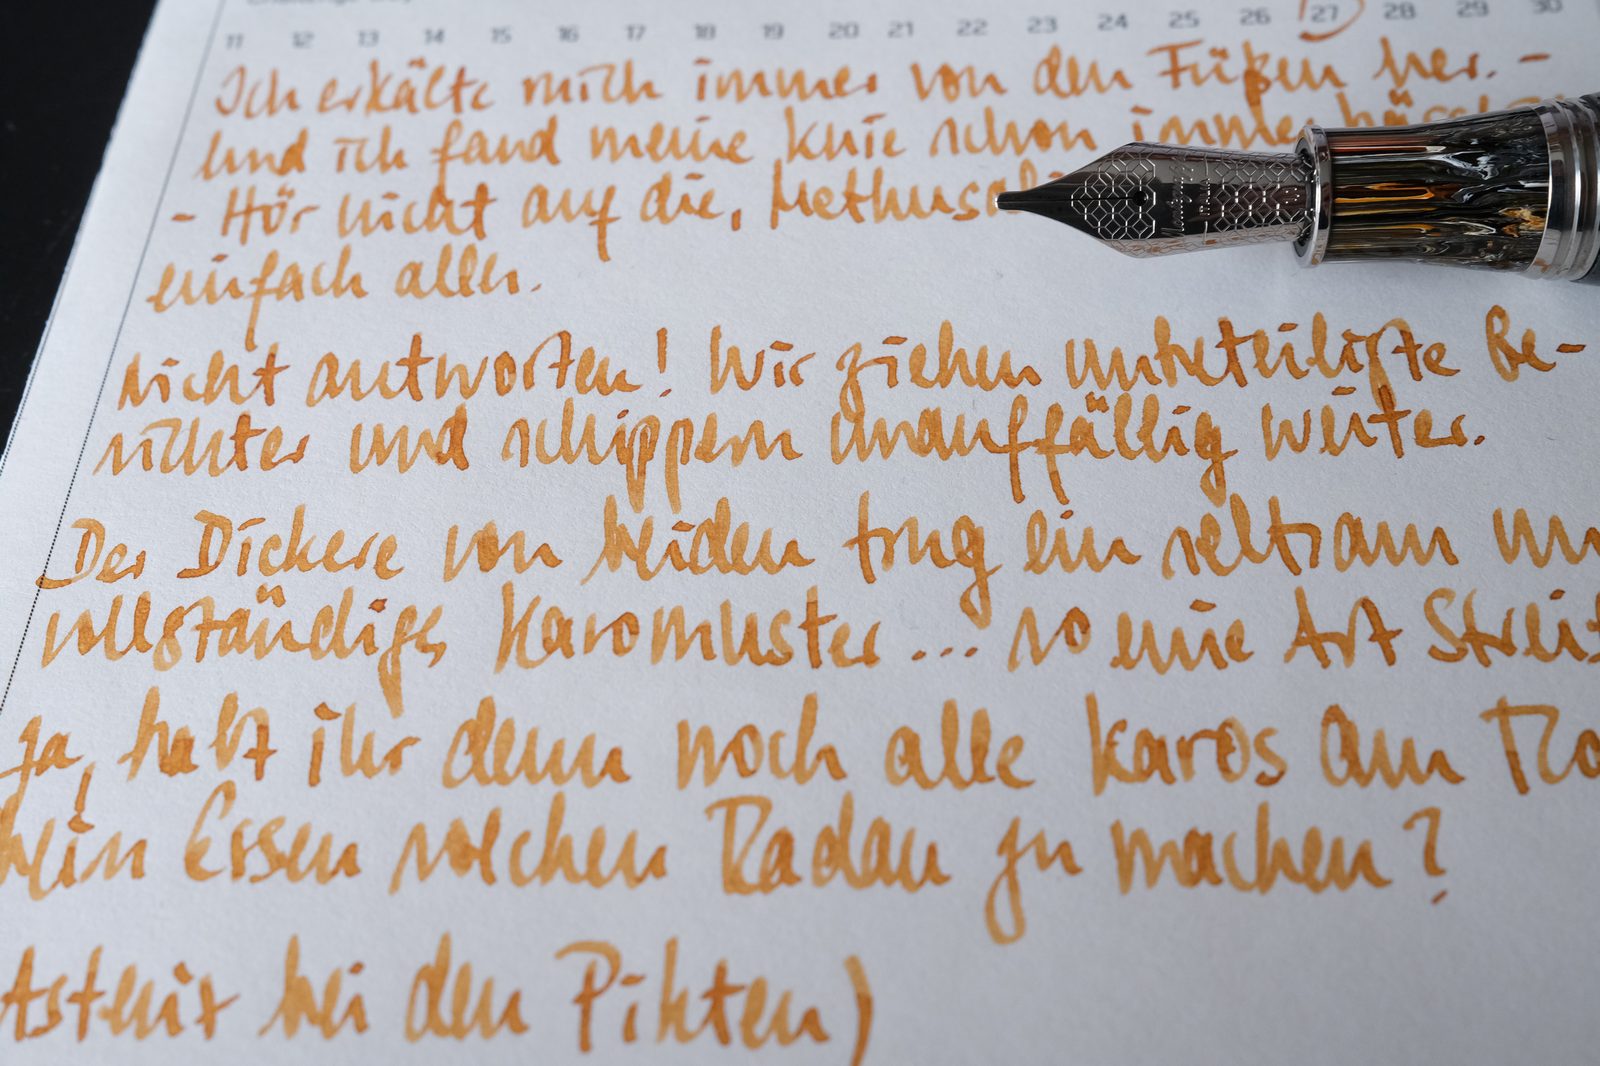 11 12 13 14 15 16 17 18 19 20 21 22 23 24 25 26 27 28 29 30
Ich erkälte mich immer von den Füßen her. -
Und ich fand meine Knie schon immer
- Hör nicht auf die,
einfach allen.
Nicht antworten! Wir ziehen unbeteiligte Ge-
sichter und schippern unauffällig weiter.
Der Dickere von beiden trug ein seltsam un
vollständiges Karomuster... so eine Art Streif
Ja, habt ihr denn noch alle Karos am Ro
beim Essen solchen Radau zu machen?
Asterix bei den Pikten)